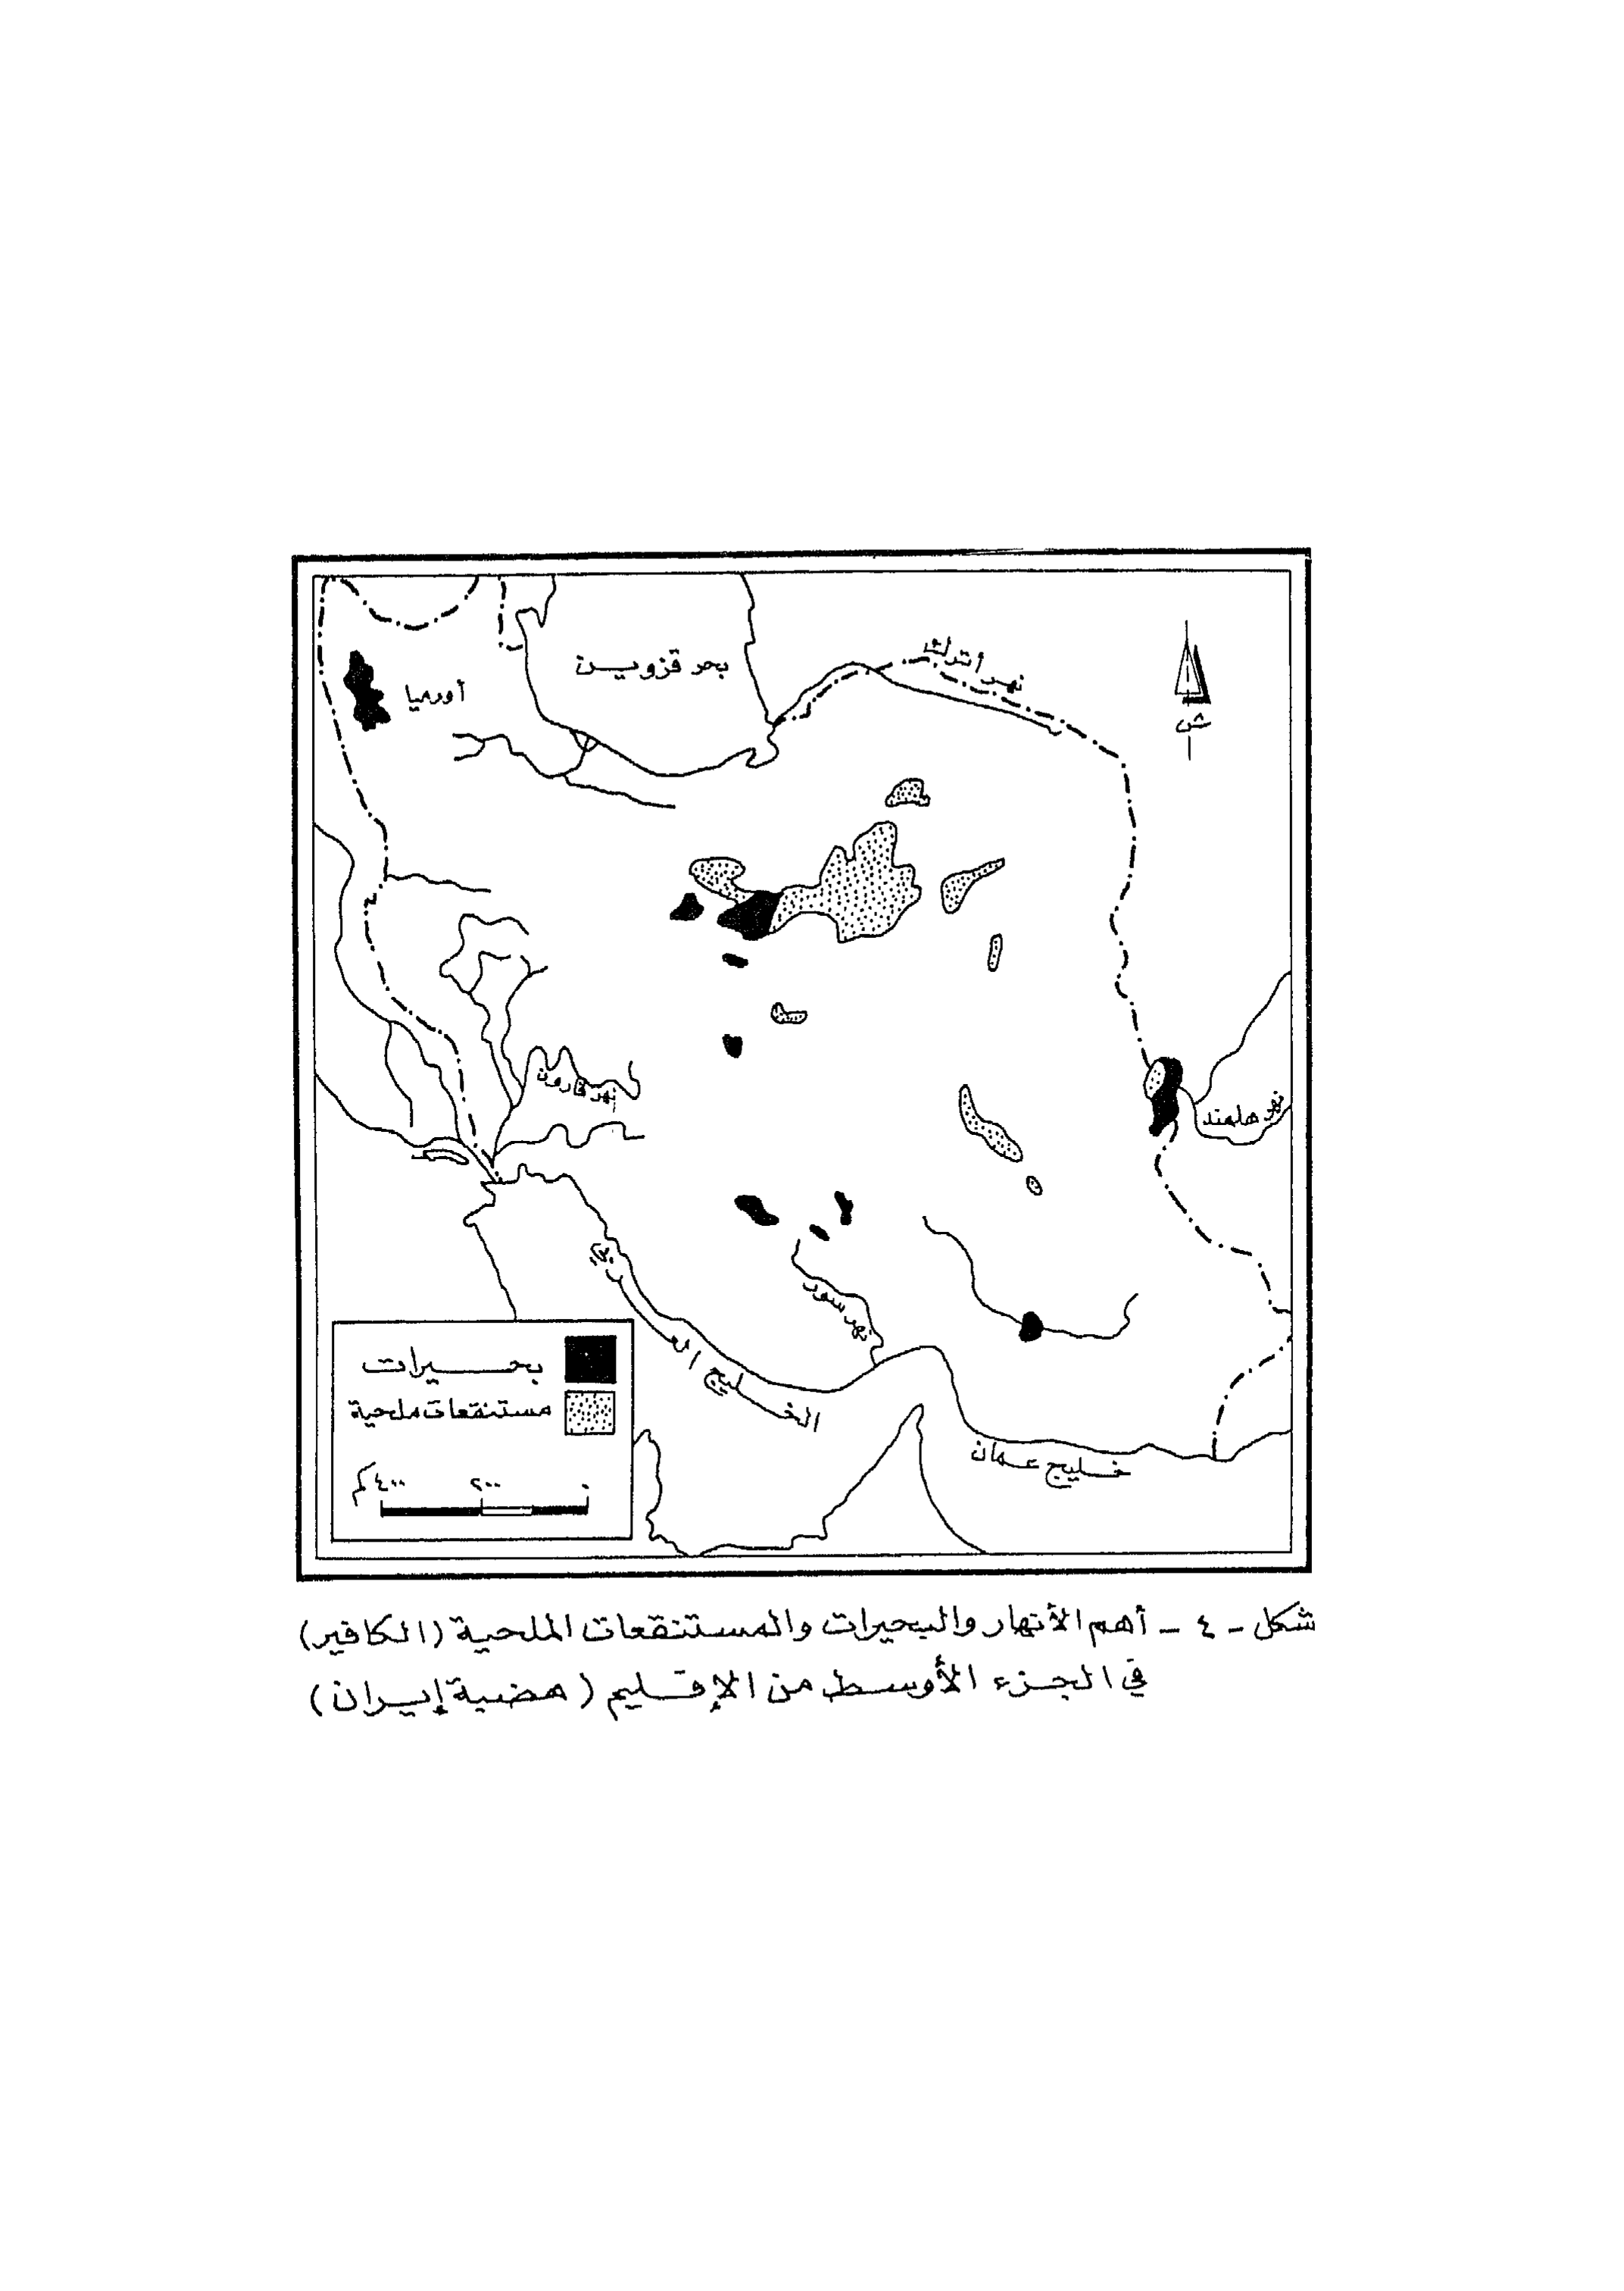 بحر قزويــن
نهر أترك
أورميا
ش
نهر قارون
نهر هلمند
نهر سور
الخليج العربي
خليج عمان
بحــــيرات
مستنقعات ملحية
٠ ٢٠٠ ٤٠٠ كم
شكل - ٤ - أهم الأنهار والبحيرات والمستنقعات الملحية (الكافير)
في الجزء الأوسط من الإقليم (هضبة إيران)